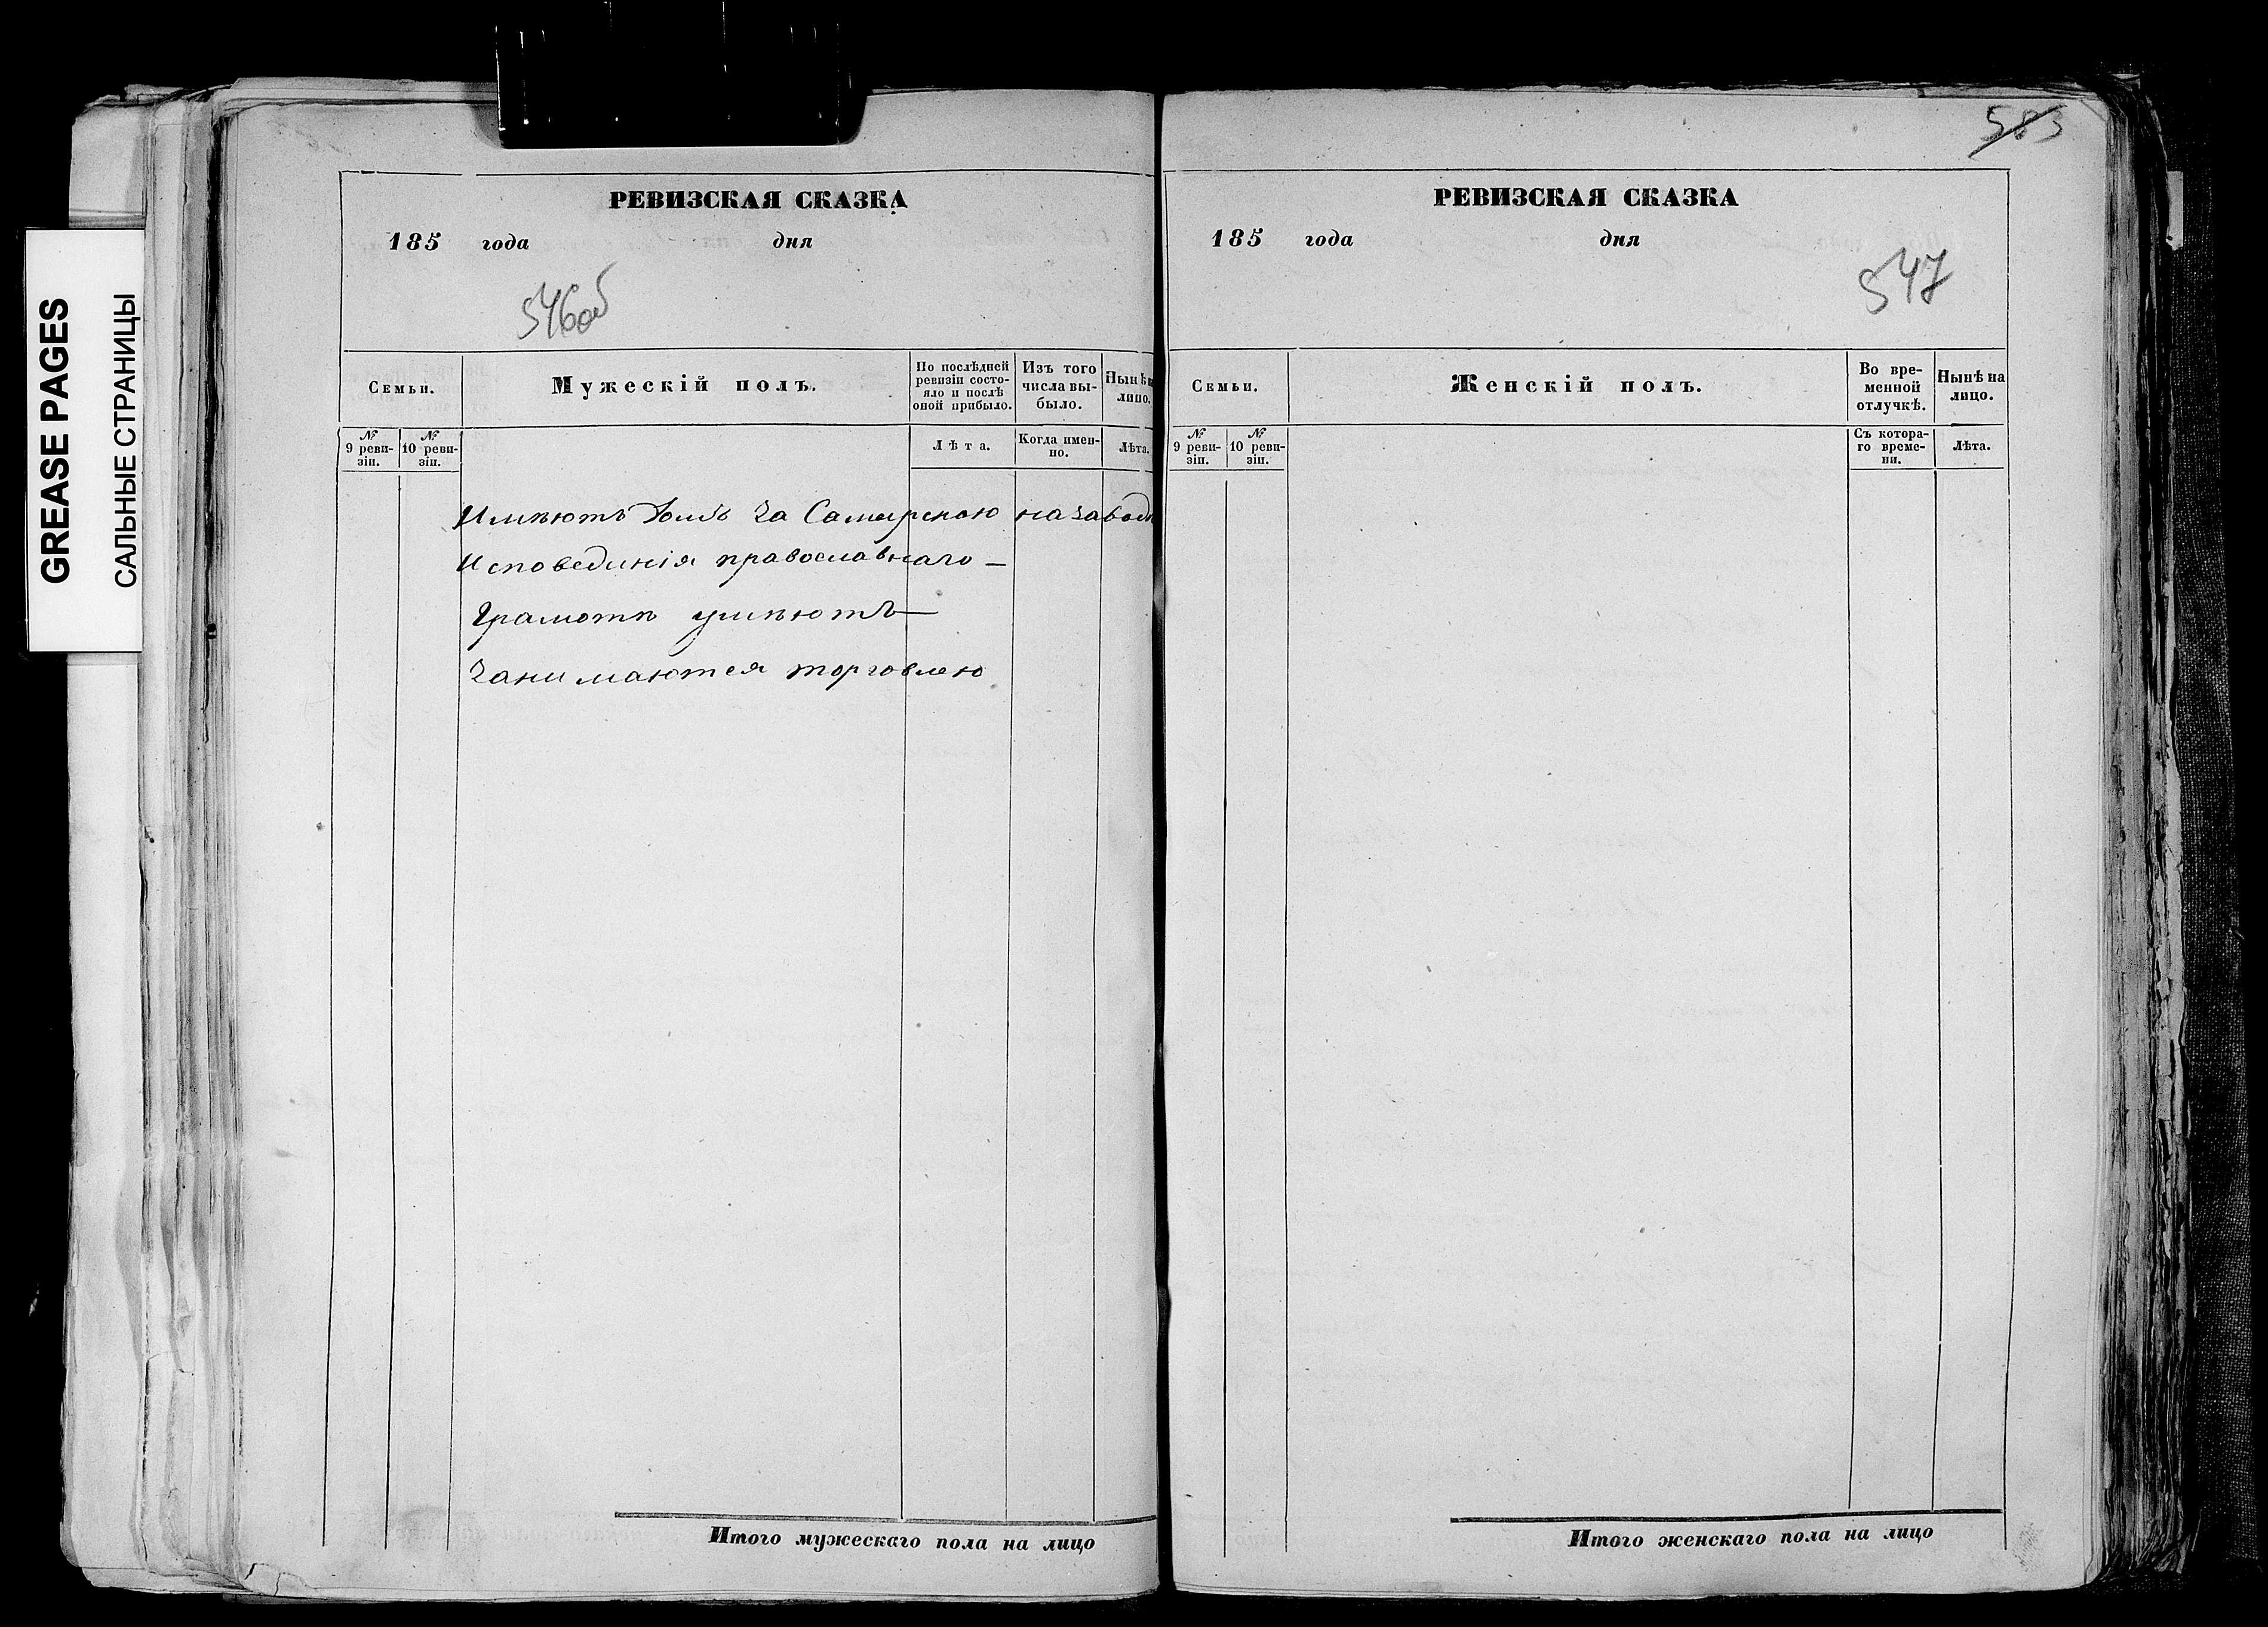 GREASE PAGES
САЛЬНЫЕ СТРАНИЦЫ
РЕВИЗСКАЯ СКАЗКА
185 года дня
546об
Семьи.
Мужескій полъ.
По послѣдней ревизіи состо-
яло и послѣ
оной прибыло.
Изъ того
числа вы-
было.
Нынѣ на
лицо.
№
9 реви-
зіи.
№
10 реви-
зіи.
Лѣта.
Когда имен-
но.
Лѣта.
Имѣютъ домъ за Самарскою на заводѣ
Исповеданія православнаго —
Грамотѣ умѣютъ —
Занимаются торговлею
Итого мужескаго пола на лицо
583
РЕВИЗСКАЯ СКАЗКА
185 года дня
547
Семьи.
Женскій полъ.
Во вре-
менной
отлучкѣ.
Нынѣ на
лицо.
№
9 реви-
зіи.
№
10 реви-
зіи.
Съ котора-
го време-
ни.
Лѣта.
Итого женскаго пола на лицо